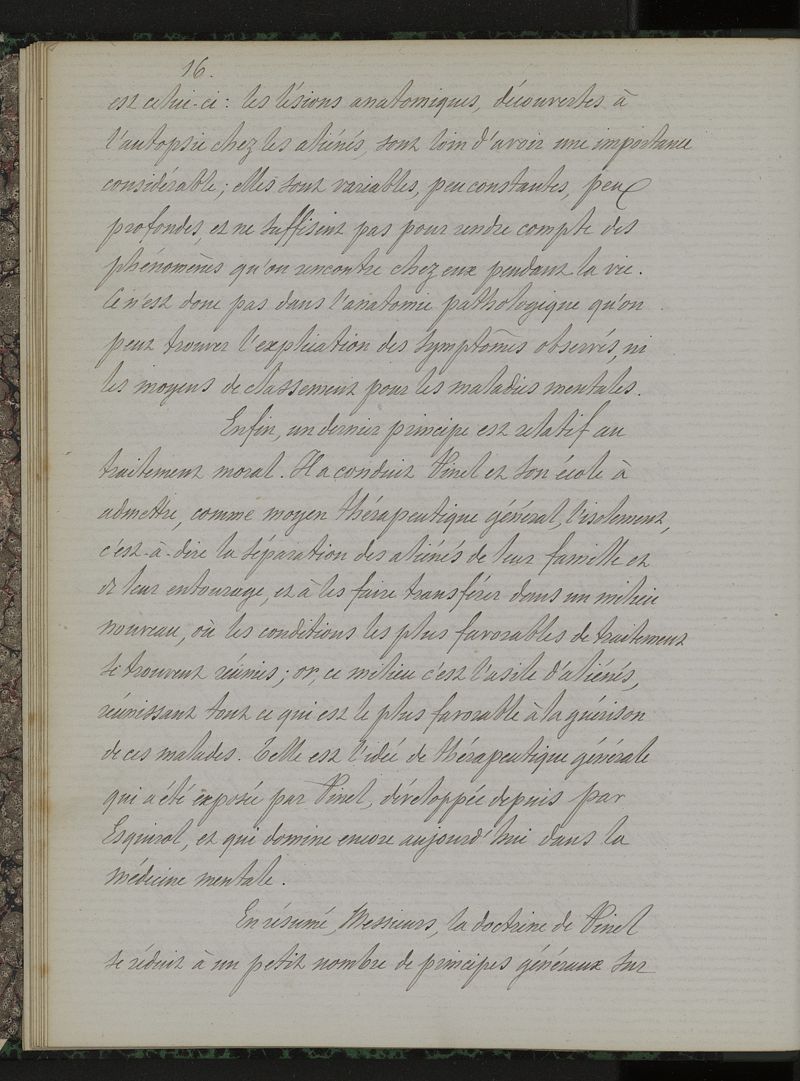 16.
est celui-ci : les lésions anatomiques, découvertes à
l'autopsie chez les aliénés, sont loin d'avoir une importance
considérable ; elles sont variables, peu constantes, peu
profondes, et ne suffisent pas pour rendre compte des
phénomènes qu'on rencontre chez eux pendant la vie.
Ce n'est donc pas dans l'anatomie pathologique qu'on
peut trouver l'explication des symptômes observés, ni
les moyens de classement pour les maladies mentales.
Enfin, un dernier principe est relatif au
traitement moral. Il a conduit Pinel et son école à
admettre, comme moyen thérapeutique général, l'isolement,
c'est-à-dire la séparation des aliénés de leur famille et
de leur entourage, et à les faire transférer dans un milieu
nouveau, où les conditions les plus favorables de traitement
se trouvent réunies ; or, ce milieu c'est l'asile d'aliénés,
réunissant tout ce qui est le plus favorable à la guérison
de ces malades. Telle est l'idée de thérapeutique générale
qui a été exposée par Pinel, développée depuis par
Esquirol, et qui domine encore aujourd'hui dans la
médecine mentale.
En résumé, Messieurs, la doctrine de Pinel
se réduit à un petit nombre de principes généraux sur